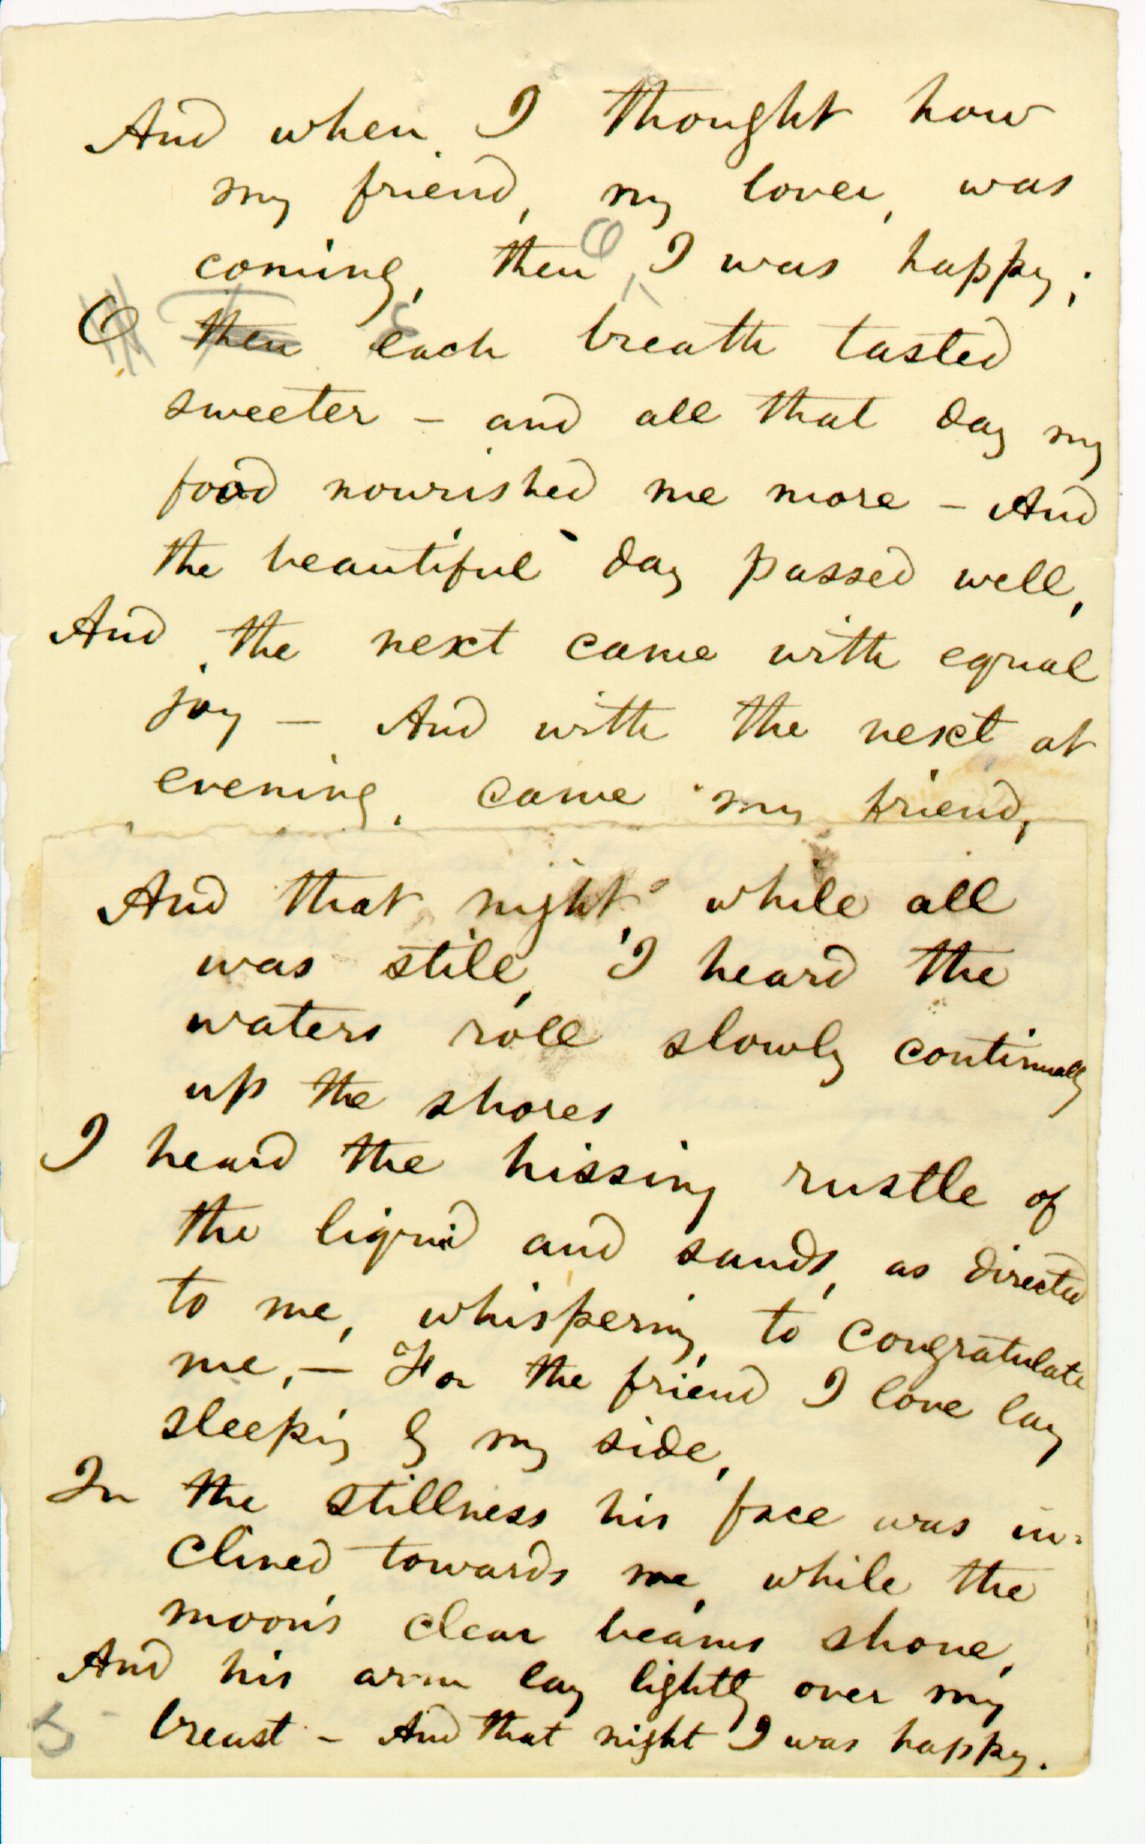 And when I thought how
my friend, my lover, was
coming, then O I was happy;
O then each breath tasted
sweeter – and all that day my
food nourished me more – And
the beautiful day passed well,
And the next came with equal
joy – And with the next at
evening, came my friend,
And that night, while all
was still, I heard the
waters roll slowly continually
up the shores
I heard the hissing rustle of
the liquid and sands, as directed
to me, whispering, to congratulate
me, – For the friend I love lay
sleeping by my side,
In the stillness his face was in-
clined towards me, while the
moon's clear beams shone,
And his arm lay lightly over my
breast – And that night I was happy.